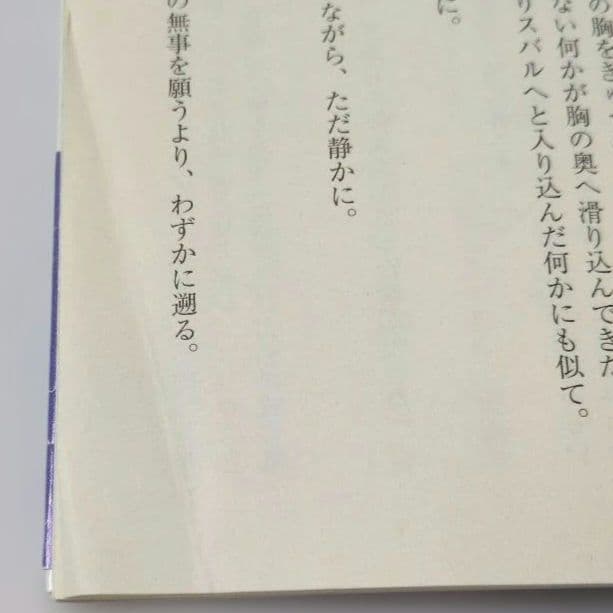 の胸をぎゅ
ない何かが胸の奥へ滑り込んできた
りスバルへと入り込んだ何かにも似て。
に。
ながら、ただ静かに。
の無事を願うより、わずかに遡る。